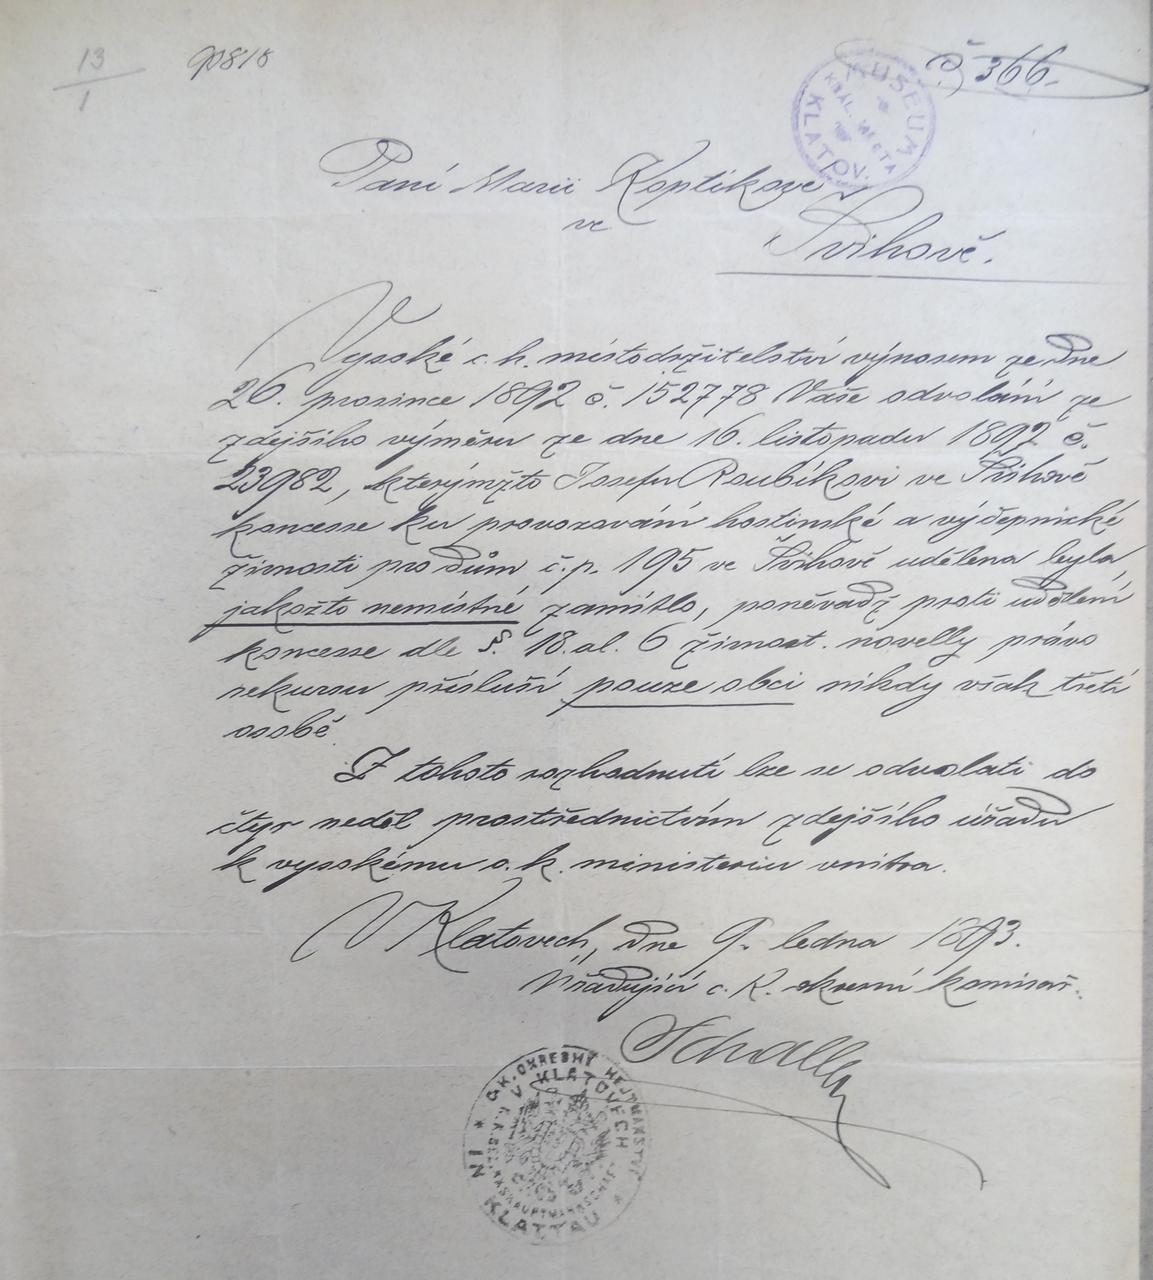 13
1
č 366.
MUSEUM KRÁL. MĚSTA KLATOV.
Paní Marii Koptíkové
ve
Švihově.
Vysoké c. k. místodržitelství výnosem ze dne
26. prosince 1892 č. 152778 Vaše odvolání ze
zdejšího výměru ze dne 16. listopadu 1892 č.
23982, kterýmžto Josefu Roubíkovi ve Švihově
koncesse ku provozování hostinské a výčepnické
živnosti pro dům č.p. 195 ve Švihově udělena byla,
jakožto nemístné zamítlo, poněvadž proti udělení
koncesse dle §. 18. al. 6 živnost. novelly právo
rekursu přísluší pouze obci nikdy však třetí
osobě
Z tohoto rozhodnutí lze se odvolati do
čtyr neděl prostřednictvím zdejšího úřadu
k vysokému c. k. ministeriu vnitra.
V Klatovech, dne 9. ledna 1893.
Úřadující c. k. okresní komisař.
C.K. OKRESNÍ HEJTMANSTVÍ
V KLATOVECH
K.K. BEZIRKSHAUPTMANNSCHAFT
IN KLATTAU